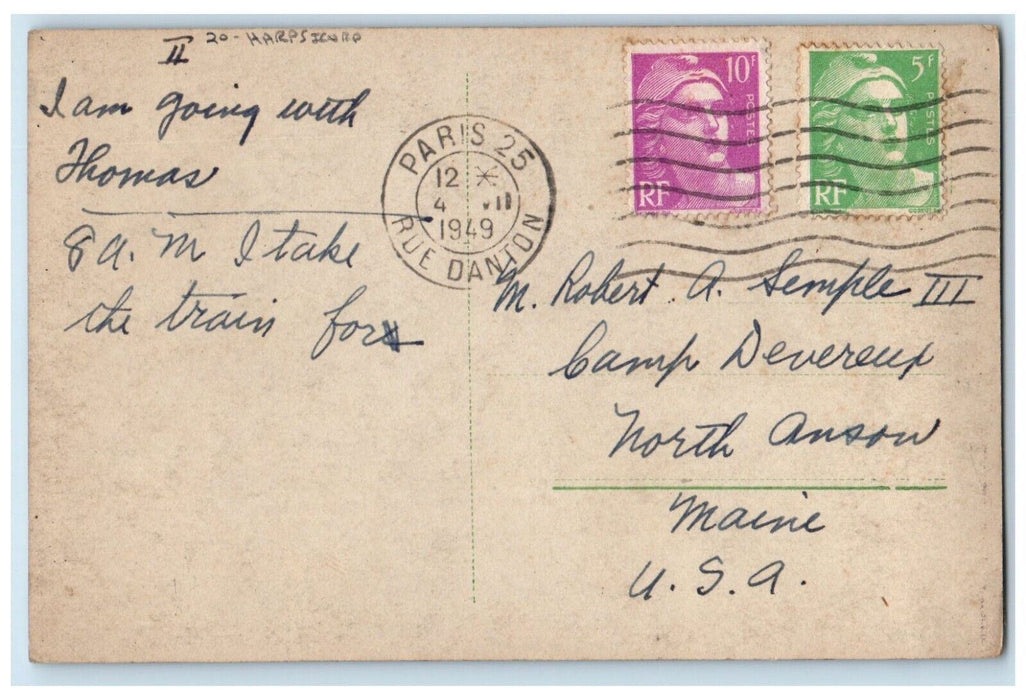 20 - HARPSICHORD
II
I am going with
Thomas
8 a. M I take
the train for
PARIS 25
12 *
4 VII
1949
RUE DANTON
10F
POSTES
RF
5F
POSTES
RF
M. Robert A. Semple III
Camp Devereux
North Anson
Maine
U. S. A.